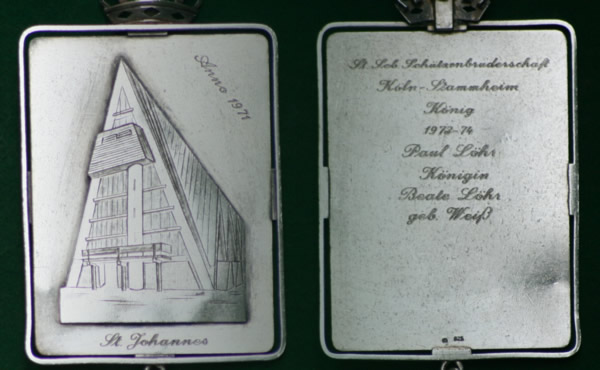 Anno 1971
St. Johannes
St. Seb. Schützenbruderschaft
Köln-Stammheim
König
1973-74
Paul Löhr
Königin
Beate Löhr
geb. Weiß
925